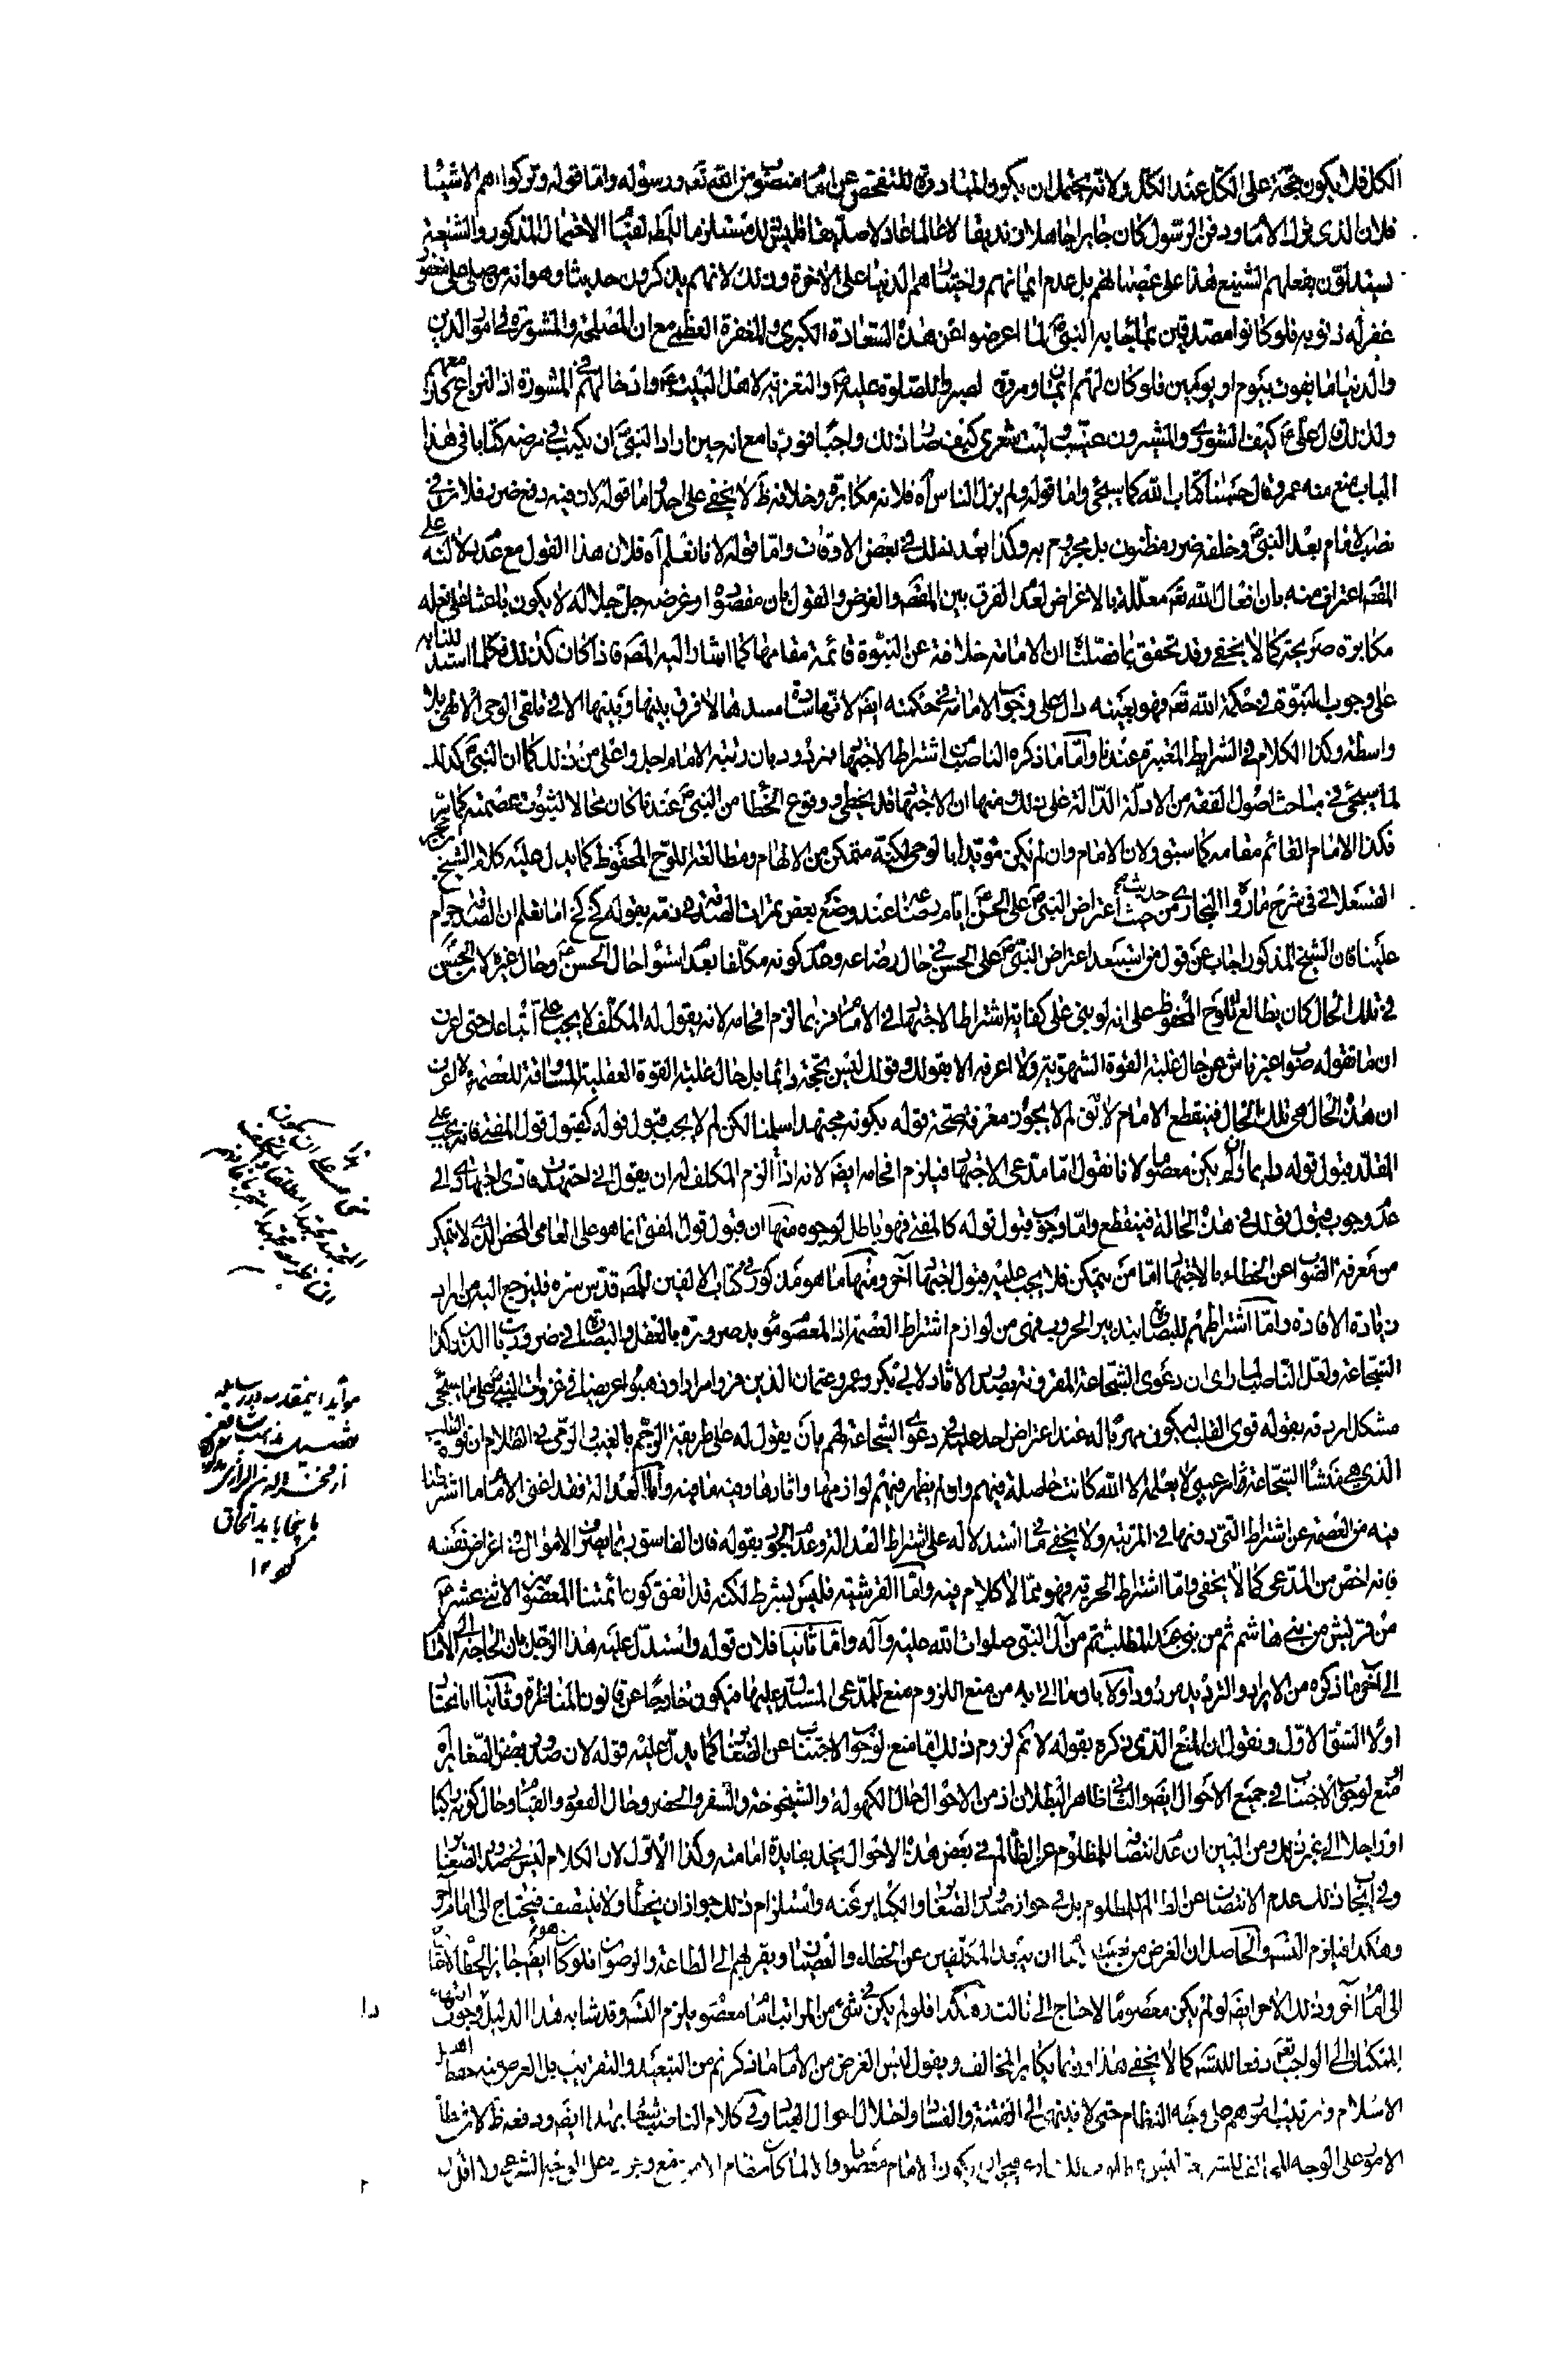 الكل فلا يكون حجّة على الكلّ عند الكلّ ولانّه يحتمل ان يكون المبادرة للتفحّص عن امام منصوب من الله تعه ورسوله واما قوله وتركوا اهم الاشياء
فلان الذى ترك الامام ودفن الرسول كان جابرا جاهلا زنديقا لا عالما عادلا صلّبهذا فليس لك مستلزما للمط لقيام الاحتمال المذكور والشيعة
يستدلّون بفعلهم الشنيع هذا على عصيانهم بل عدم ايمانهم واختيارهم الدنيا على الاخرة وذلك لانهم يذكرون حديثا وهو انه من صلى على مغفور
غفر له ذنوبه فلو كانوا مصدقين بما جاء به النبى لما اعرضوا عن هذه السعادة الكبرى والمغفرة العظمى مع ان المصلحة والمشورة فى امور الدين
والدنيا ما يفوت بيوم او يومين فلو كان لهم ايمان ومروة لصبروا للصلوة عليه والتعزية لاهل البيت وادخالهم فى المشورة اذ النزاع كان معهم
ولذلك قال على كيف الشورى والمشيرون غيّب وليت شعرى كيف صار ذلك واجبا فوريا مع انه حين اراد النبى ان يكتب فى مرضه كتابا فى هذا
الباب منع منه عمر وقال حسبنا كتاب الله كما سيجئ واما قوله ولم يزل الناس آه فلانه مكابرة وخلافه ظ لا يخفى على احد واما قوله لان فيه دفع ضرر فلان فى
نصب الامام بعد النبى وخلفه ضرر مظنون بل مجزوم به وكذا بعد ذلك فى بعض الاوقات واما قوله لانا نعلم آه فلان هذا القول مع عدم دلالته على
المقصد اعتراف منه بان افعال الله تعه معلّلة بالاغراض لعدم الفرق بين المقصد والغرض والقول بان مقصوده او غرضه جل جلاله لا يكون باعثا على فعله
مكابرة صريحة كما لا يخفى وقد تحقق بما فصّلنا ان الامامة خلافة عن النبوة قائمة مقامها كما اشار اليه المصه فاذا كان كذلك فكلما استدللنا به
على وجوب النبوّة فى حكمة الله تعه فهو بعينه دالّ على وجوب الامامة فى حكمته ايضه لانّها سادّة مسدها لا فرق بينها وبينها الا فى تلقى الوحى الالهى بلا
واسطة وكذا الكلام فى الشرايط المعتبرة عندنا وامّا ما ذكره الناصب من اشتراط الاجتهاد فمردود بان رتبة الامام اجل واعلى من ذلك كما ان النبى كذلك
لما سيجئ فى مباحث اصول الفقه من الادلة الدالة على ذلك ومنها ان الاجتهاد قد يخطى ووقوع الخطا من النبى عندنا كان محالا لثبوت عصمته كما مرّ
فكذا الامام القائم مقامه كما سبق ولان الامام وان لم يكن مؤيّدا بالوحى لكنه متمكن من الالهام ومطالعة اللوح المحفوظ كما يدل عليه كلام الشيخ
القسطلانى فى شرح ما رواه البخارى من حديث اعتراض النبى على الحسن ايام رضاعه عند وضع بعض تمرات الصدقة فى فمه بقوله كخ كخ اما تعلم ان الصدقة حرام
علينا فان الشيخ المذكور اجاب عن قول من استبعد اعتراض النبى على الحسن فى حال رضاعه وعدم كونه مكلّفا بعدم استواء حال الحسن وحال غيره لان الحسن
فى تلك الحال كان يطالع اللوح المحفوظ على انه لو بنى على كفاية اشتراط الاجتهاد فى الامام فربما لزم افحامه لانه يقول له المكلّف لا يجب على اتباعك حتى اعرف
ان ما تقوله صواب غير ناش عن حال غلبة القوة الشهوية ولا اعرفه الا بقولك وقولك ليس بحجة دائما بل حال غلبة القوة العقلية المساوقة للعصمة ولا اعرف
ان هذه الحال هى تلك الحال فينقطع الامام لا يق لم لا يجوز معرفة صحة قوله بكونه مجتهدا سلمنا لكن لم لا يجب قبول قوله كقبول قول المفتى فانه يجب على
المقلّد قبول قوله دايما وان لم يكن معصوما لانا نقول امّا مدعى الاجتهاد فيلزم افحامه ايضه لانه اذا الزم المكلف له ان يقول انى اجتهدت فادّى اجتهادى الى
عدم وجوب قبول قولك فى هذه الحالة فينقطع وامّا وجوب قبول قوله كالمفتى فهو باطل لوجوه منها ان قبول قول المفتى انما هو على العامى المحض الذى لا يتمكن
من معرفة الصواب عن الخطاء بالاجتهاد امّا من يتمكن فلا يجب عليه قبول اجتهاد آخر ومنها ما هو مذكور فى كتاب الالفين للمصه قدّس سره فليرجع اليه من اراد
زيادة الافادة وامّا اشتراطهم للبصارة بتدبير الحروب فهى من لوازم اشتراط العصمة اذ المعصوم مؤيد ضرورة بالعقل والبصارة فى ضروريات الدين وكذا
الشجاعة ولعلّ الناصب لما راى ان دعوى الشجاعة المقرونة بصدور الآثار لابى بكر وعمر وعثمان الذين فروا مرارا وذهبوا عريضا فى غزوات النبى على ما سيجئ
مشكل اردفه بقوله قوى القلب ليكون مهربا له عند اعتراض احد عليه فى دعوى الشجاعة لهم بان يقول له على طريقة الرجم بالغيب والرمى فى الظلام ان قوة القلب
الذى هى منشا الشجاعة وامر غيبى لا يعلمه الا الله كانت حاصلة فيهم وان لم يظهر منهم لوازمها وآثارها وفيه ما فيه وامّا العدالة فقد اغنى الامام ما اشترطنا
فيه من العصمة عن اشتراط التى دونها فى المرتبة ولا يخفى ما فى استدلاله على اشتراط العدالة وعدم الجور بقوله فان الفاسق ربما يصرف الاموال فى اغراض نفسه
فانه اخص من المدّعى كما لا يخفى وامّا اشتراط الحرية فهو ممّا لا كلام فيه وامّا القرشية فليس بشرط لكنه قد اتفق كون ائمتنا المعصومين الاثنى عشر
من قريش من بنى هاشم ثم من بنى عبد المطلب ثم من آل النبى صلوات الله عليه وآله وامّا ثانيا فلان قوله واستدلّ عليه هذا الرجل بان الحاجة الى الامام
الى آخر ما ذكره من الايراد والترديد مردود اولا بان ما اتى به من منع اللزوم منع للمدّعى المستدلّ عليها فيكون خارجا عن قانون المناظرة وثانيا بانا نختار
اولا الشق الاوّل ونقول ان المنع الذى ذكره بقوله لا نم لزوم ذلك امّا منع لوجوب الاجتناب عن الصغائر كما يدلّ عليه قوله لان صدور بعض الصغائر آه
او منع لوجوب الاجتناب فى جميع الاحوال ايضه والثانى ظاهر البطلان اذ من الاحوال حال الكهولة والشيخوخة والسفر والحضر وحال القعود والقيام وحال كونه راكبا
او راجلا الى غير ذلك ومن البيّن ان عدم انتصافه للمظلوم عن الظالم فى بعض هذه الاحوال يخل بفايدة امامته وكذا الاوّل لان الكلام ليس فى صدور الصغائر
وفى ايجاب ذلك عدم الانتصاف عن الظالم للمظلوم بل فى جواز صدور الصغائر والكبائر عنه واستلزام ذلك جواز ان يخطأ ولا ينتصف فيحتاج الى امام آخر
وهكذا فيلزم التسه والحاصل ان الغرض من نصب الامام ان يبعد المكلّفين عن الخطاء والعصيان ويقربهم الى الطاعة والرضوان فلو كان هو ايضه جايز الخطا لاحتاج
الى امام آخر وذلك الآخر ايضه لو لم يكن معصوما لاحتاج الى ثالث وهكذا فلو لم يكن فى شئ من المراتب امام معصوم يلزم التسه وقد شابه هذا الدليل وجوب انتهاء
الممكنات الى الواجب تعه دفعا للتسه كما لا يخفى هذا وربما يكابر المخالف ويقول ليس الغرض من الامام ما ذكرتم من التبعيد والتقريب بل الغرض منه حفظ اهل
الاسلام وترتيب امورهم على وجه النظام حتى لا ينتهى الى الفتنة والفساد واختلال احوال العباد وفى كلام الناصب اشعار بهذا ايضه ودفعه ظ لان خطأ
الامور على الوجه المخالف للشريعة ليس الا الفساد فيجب ان يكون الامام معصوما ولما كان مقام الامر مع وجوده على الوجه الشرعى ولا اقل